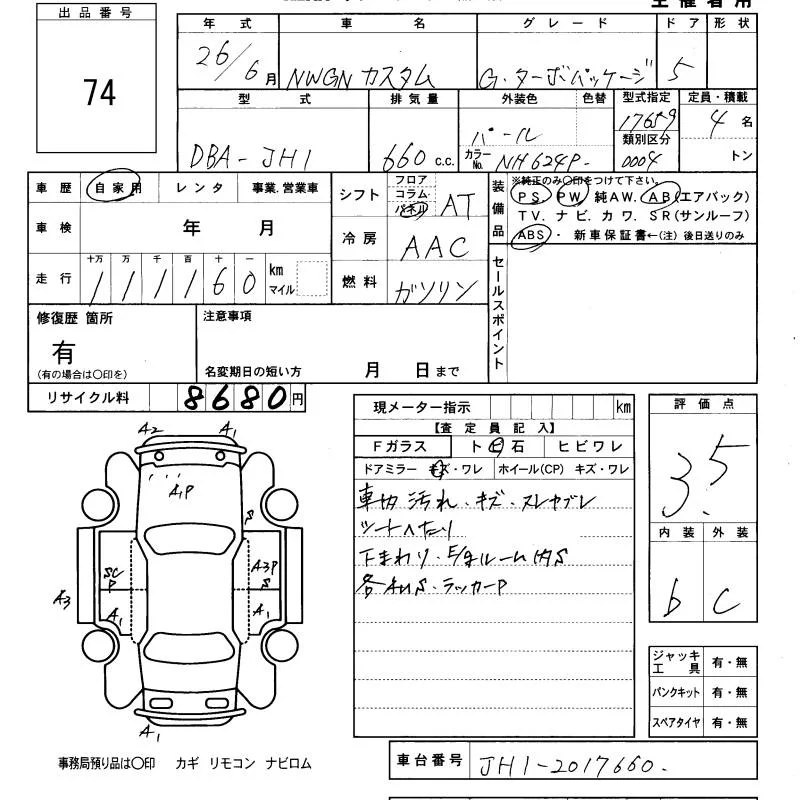 出品番号
74
年式 車名 グレード ドア 形状
26/6月 NWGN カスタム G・ターボパッケージ 5
型式 排気量 外装色 色替 型式指定 定員・積載
DBA-JH1 660 c.c. パール 17659 4名
カラーNo. NH624P- 類別区分 0004 トン
車歴 自家用 レンタ 事業.営業車
車検 年 月
走行 十万 万 千 百 十 一 km マイル
1 1 1 1 6 0
シフト フロア コラム パネル AT
冷房 AAC
燃料 ガソリン
装備品 ※純正のみ〇印をつけて下さい。
PS. PW. 純AW. AB(エアバック)
TV. ナビ. カワ. SR(サンルーフ)
ABS・ 新車保証書←(注) 後日送りのみ
セールスポイント
修復歴 箇所 注意事項
有
(有の場合は〇印を) 名変期日の短い方 月 日まで
リサイクル料 8680円
現メーター指示 km
【査定員記入】
Fガラス トビ石 ヒビワレ
ドアミラー キズ・ワレ ホイール(CP) キズ・ワレ
車内 汚れ・キズ・スレヤブレ
シートヘたり
下まわり・E/gルーム内S
各AUS・ラッカーP
評価点
3.5
内装 外装
b C
A2 A1
A1P
S
SC P
A3P S
A3
A1 A1
A1
ジャッキ工具 有・無
パンクキット 有・無
スペアタイヤ 有・無
事務局預り品は〇印 カギ リモコン ナビロム
車台番号 JH1-2017660.